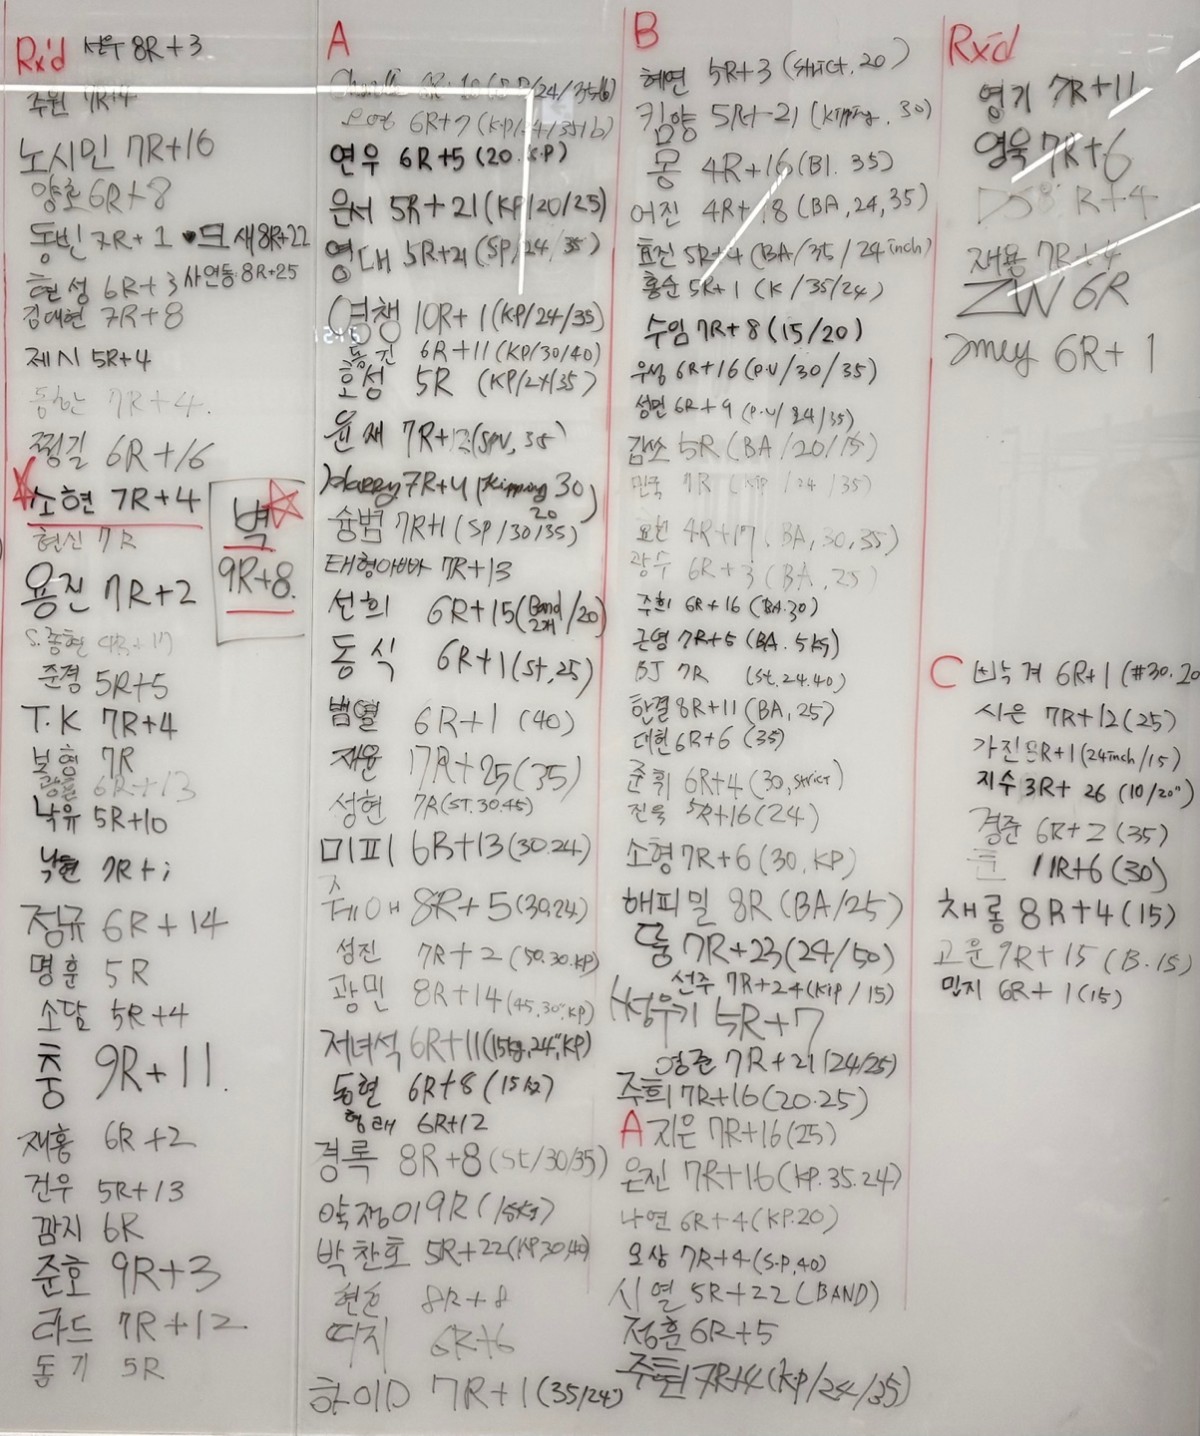 Rx'd 선우 8R+3
주원 7R+4
노시민 7R+16
양호 6R+8
동빈 7R+1
드새 8R+22
현성 6R+3
사연동 8R+25
김대현 7R+8
제시 5R+4
동한 7R+4.
찡길 6R+16
소현 7R+4
벽
9R+8.
현신 7R
용진 7R+2
S.종현
준경 5R+5
T.K 7R+4
보형 7R
6R+13
낙유 5R+10
낙현 7R+1
정규 6R+14
명훈 5R
소담 5R+4
충 9R+11.
재홍 6R+2
건우 5R+13
깜지 6R
준호 9R+3
라드 7R+12
동기 5R
A
6R+7
연우 6R+5 (20.S.P)
은서 5R+21 (KP/20/25)
영대 5R+21 (SP/24/35)
영챙 10R+1 (KP/24/35)
동진 6R+11 (KP/30/40)
호성 5R (KP/24/35)
윤재
Harry 7R+4 (Kipping 30)
슝범 7R+1 (SP/30/35)
20
태형아빠 7R+13
선희 6R+15 (Band 2개/20)
동식 6R+1 (St,25)
범열 6R+1 (40)
재윤 17R+25 (35)
성현 7R (ST.30.45)
미피 6R+13 (30.24)
쥬니애 8R+5 (30,24)
성진 7R+2 (50.30.KP)
광민 8R+14 (45.30".KP)
저녀석 6R+11 (15kg,24",KP)
동현 6R+8
형래 6R+12
경록 8R+8 (St/30/35)
악정이 9R (15kg)
박찬호 5R+22 (KP.30,40)
현순 8R+8
딱지 6R+6
하이D 7R+1 (35/24)
B
혜연 5R+3 (Strict.20)
킴양 5R+21 (Kipping.30)
몽 4R+16 (B1.35)
어진 4R+18 (BA,24,35)
효진 5R+4 (BA/35/24inch)
홍순 5R+1 (K/35/24)
수임 7R+8 (15/20)
우성 6R+16 (P.U/30/35)
성민 6R+9 (P.U/24/35)
갑쓰 5R (BA/20/15)
민국 7R (KIP/24/35)
요한 4R+17 (BA,30,35)
광수 6R+3 (BA,25)
주희 6R+16 (BA.30)
근영 7R+5 (BA.5KG)
BJ 7R (St.24.40)
한결 8R+11 (BA,25)
대현 6R+6 (35)
준휘 6R+4 (30,Strict)
진욱 5R+16 (24)
소형 7R+6 (30,KP)
해피밀 8R (BA/25)
뚱 7R+23 (24/50)
선주 7R+24 (KIP/15)
성우기 5R+7
영준 7R+21 (24/25)
주희 7R+16 (20.25)
A 지은 7R+16 (25)
은진 7R+16 (KP.35.24)
나연 6R+4 (KP.20)
오상 7R+4 (S.P,40)
시열 5R+22 (BAND)
정훈 6R+5
7R+4 (KP/24/35)
Rx'd
영기 7R+11
영욱 7R+6
R+4
재용 7R+4
ZW 6R
Amey 6R+1
C
6R+1 (#30.20
시은 7R+12 (25)
가진 5R+1 (24inch/15)
지수 3R+26 (10/20")
경준 6R+2 (35)
11R+6 (30)
채롱 8R+4 (15)
고운 9R+15 (B.15)
민지 6R+1 (15)